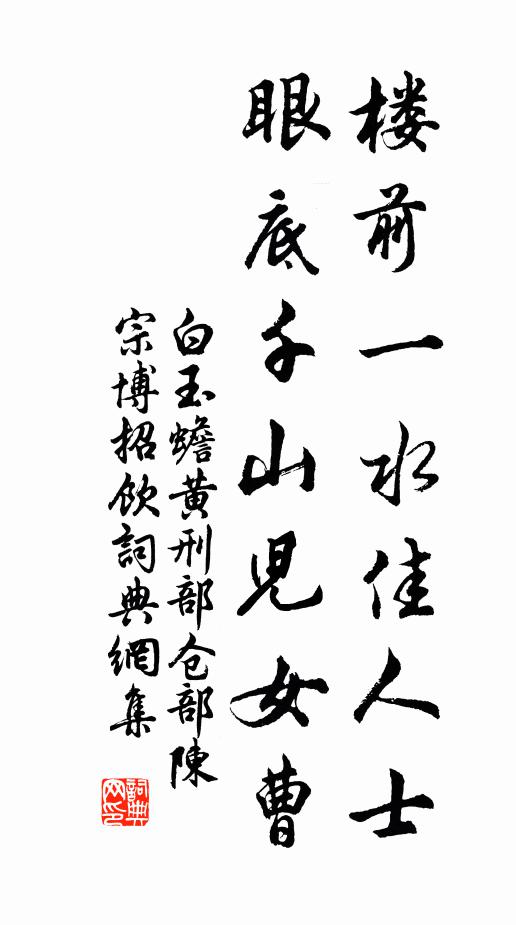 楼前一水佳人士
眼底千山児女曹
白玉蟾黄刑部仓部陳
宗博招飲詞典網集
詞典
网印